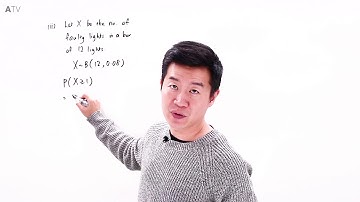 ATV
iii) Let X be the no. of
faulty lights in a box
of 12 lights
X~B(12, 0.08)
P(X≥1)
=